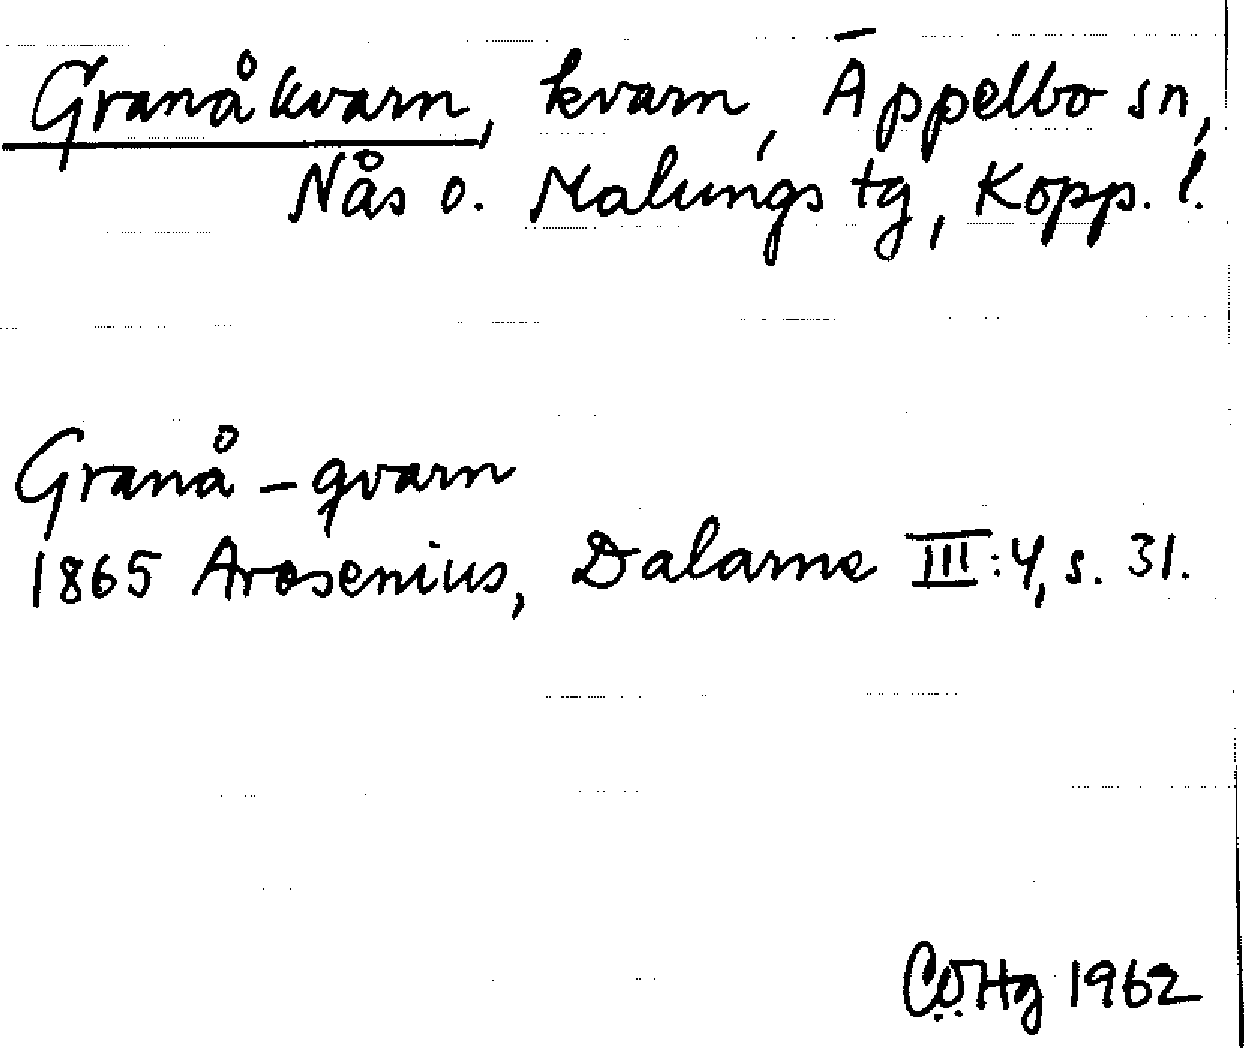 Granåkvarn, kvarn, Äppelbo sn,
Nås o. Malungs tg, Kopp. l.
Granå-qvarn
1865 Arosenius, Dalarne III:4, s. 31.
CÖHg 1962